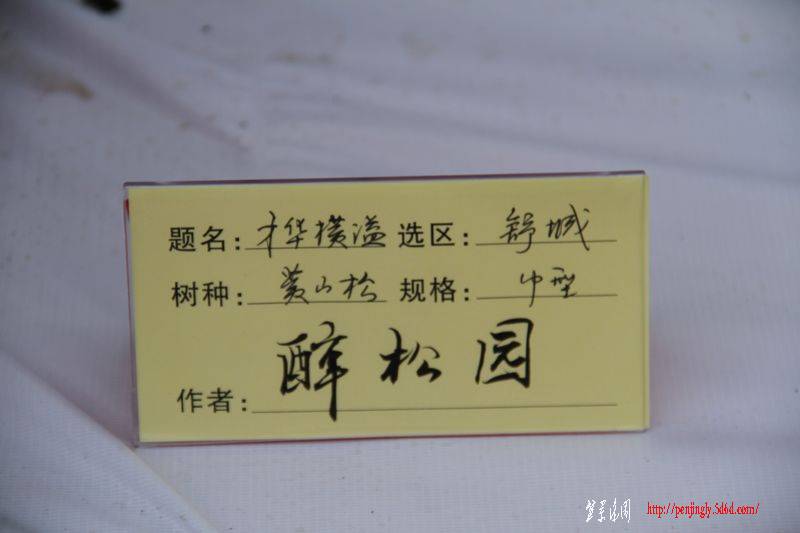 题名：才华横溢 选区：舒城
树种：黄山松 规格：中型
作者：醉松园
盆景乐园 http://penjingly.5d6d.com/